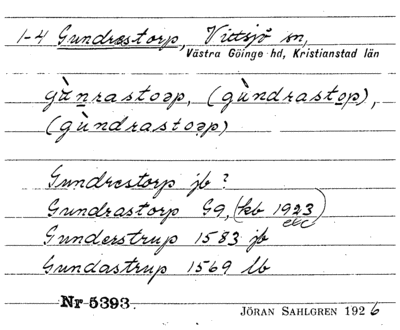 1-4 Gundrastorp, Vittsjö sn,
Västra Göinge hd, Kristianstad län
gùnrastoəp, (gùndrastop),
(gùndrastoəp)
Gundrestorp jb ?
Gundrastorp G9, (kb 1923)
etc
Gunderstrup 1583 jb
Gundastrup 1569 lb
Nr 5393.
JÖRAN SAHLGREN 1926